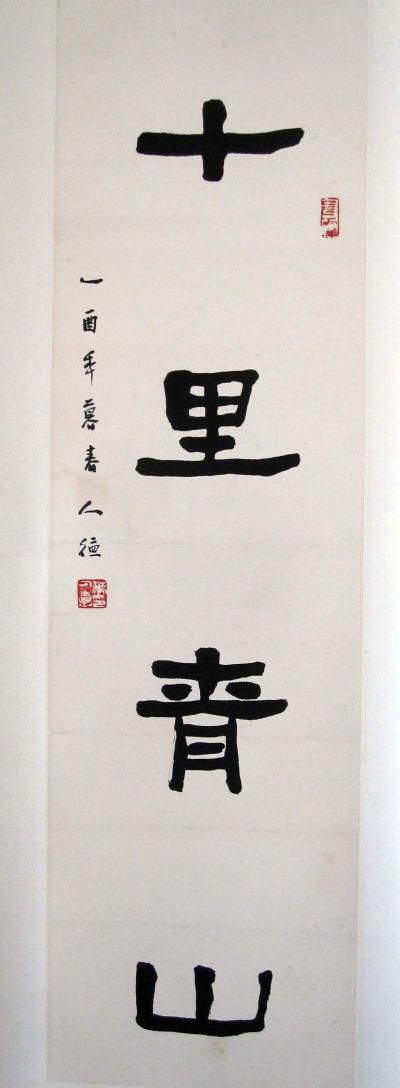 十里青山
乙酉年暮春人德